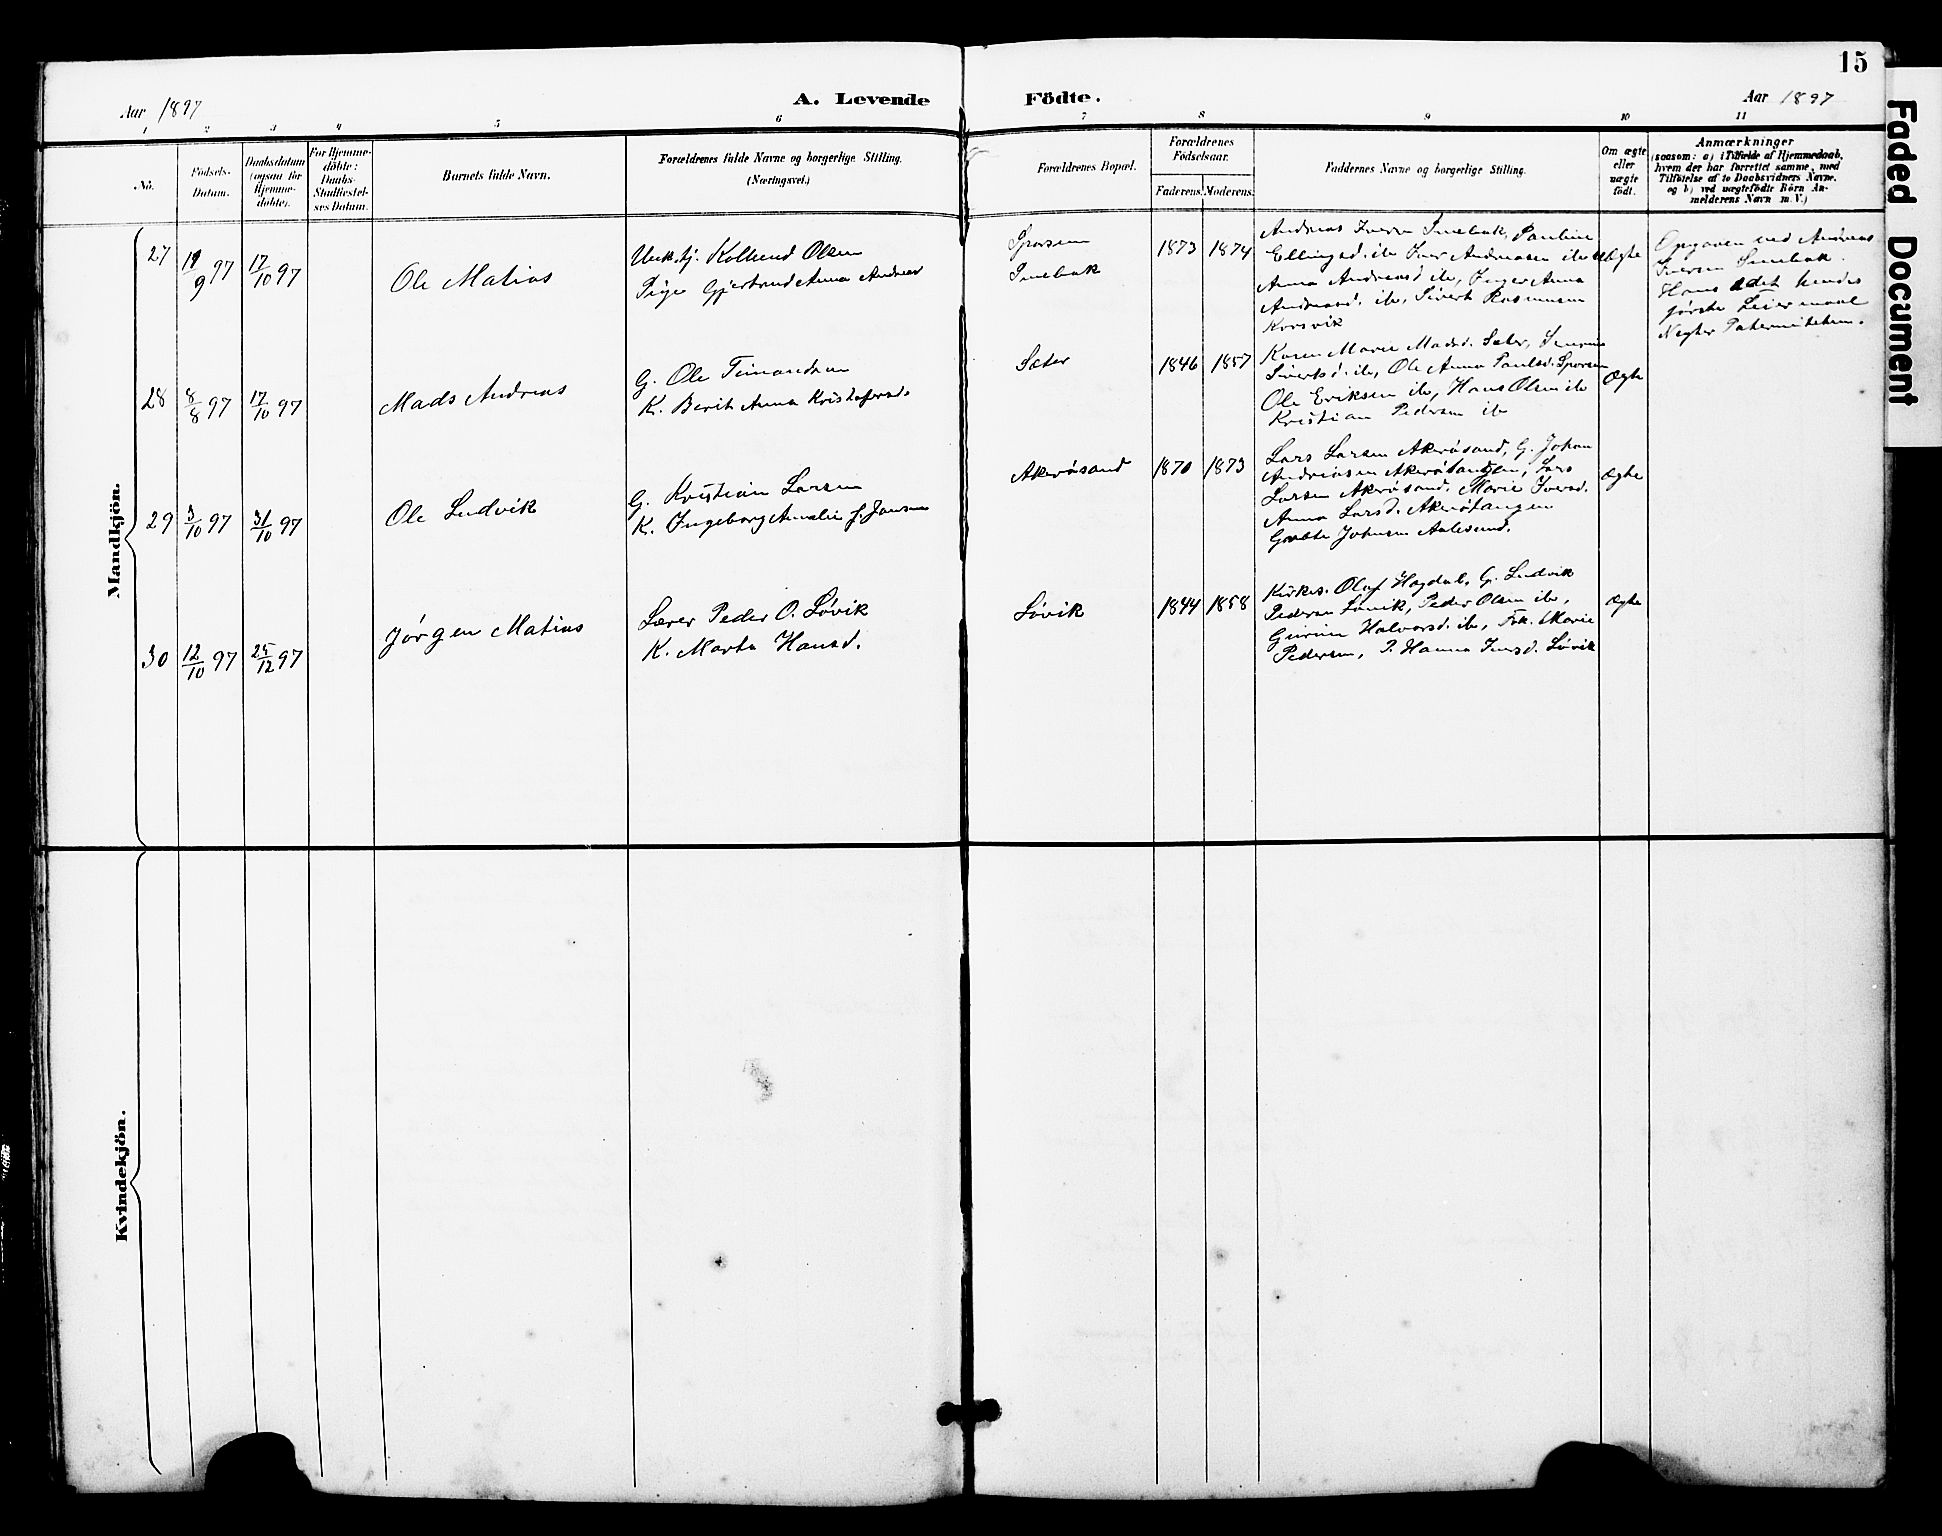 15
Faded Document
Aar 1897
A. Levende Födte.
Aar 1897
1 2 3 4 5 6 7 8 9 10 11
No.
Födsels-
Datum.
Daabsdatum
(ogsaa för
Hjemme-
döbte).
For Hjemme-
döbte:
Daabs-
Stadfæstel-
ses Datum.
Barnets fulde Navn.
Forældrenes fulde Navne og borgerlige Stilling.
(Næringsvei.)
Forældrenes Bopæl.
Forældrenes
Födselsaar.
Faderens. Moderens.
Faddernes Navne og borgerlige Stilling.
Om ægte
eller
uægte
födt.
Anmærkninger
(saasom: a) i Tilfælde af Hjemmedaab,
hvem der har forrettet samme, med
Tilföielse af to Daabsvidners Navne,
og b) ved uægtefödte Börn An-
melderens Navn m. V.)
Mandkjön.
27 19/9 97 17/10 97 Ole Matias
Unk. Kolbend Olsen
Pige Gjertrud Anna Andreasd
1873 1874
Andreas Iversen Pauline
Ellingsd. ib Iver Andreasen ib
Anna Andreasd ib, Inger Anna
Andreasd. ib, Sivert Rasmussen
Korsvik
Uægte
Opgaven ved Andreas
Iversen
Hans & det hendes
første Leiermaal
Negter Paterniteten.
28 8/8 97 17/10 97 Mads Andreas
G. Ole
K. Berit Anna Kristofersd.
Sæter
1846 1857
Karen Marie Madsd. Sæter,
Sivertsd. ib, Ole Anna Paulsd.
Ole Eriksen ib, Hans Olsen ib
Kristian Pedersen ib
Ægte
29 3/10 97 31/10 97 Ole Ludvik
G. Kristian Larsen
K. Ingeborg Amalie f. Jansen
Akerøsand
1870 1873
Lars Larsen Akerøsand, G. Johan
Andreasen Akerøtangen, Lars
Larsen Akerøsand. Marie Iversd.
Anna Larsd. Akerøtangen
Johnsen Aalesund.
Ægte
30 12/10 97 25/12 97 Jørgen Matias
Lærer Peder O. Løvik
K. Marta Hansd.
Løvik
1844 1858
Kirkes. Olaf Hagdal, G. Ludvik
Pedersen Løvik, Peder Olsen ib,
Gurine Halvorsd. ib, Frk. Marie
Pedersen, P. Hanna Iversd. Løvik
Ægte
Kvindekjön.